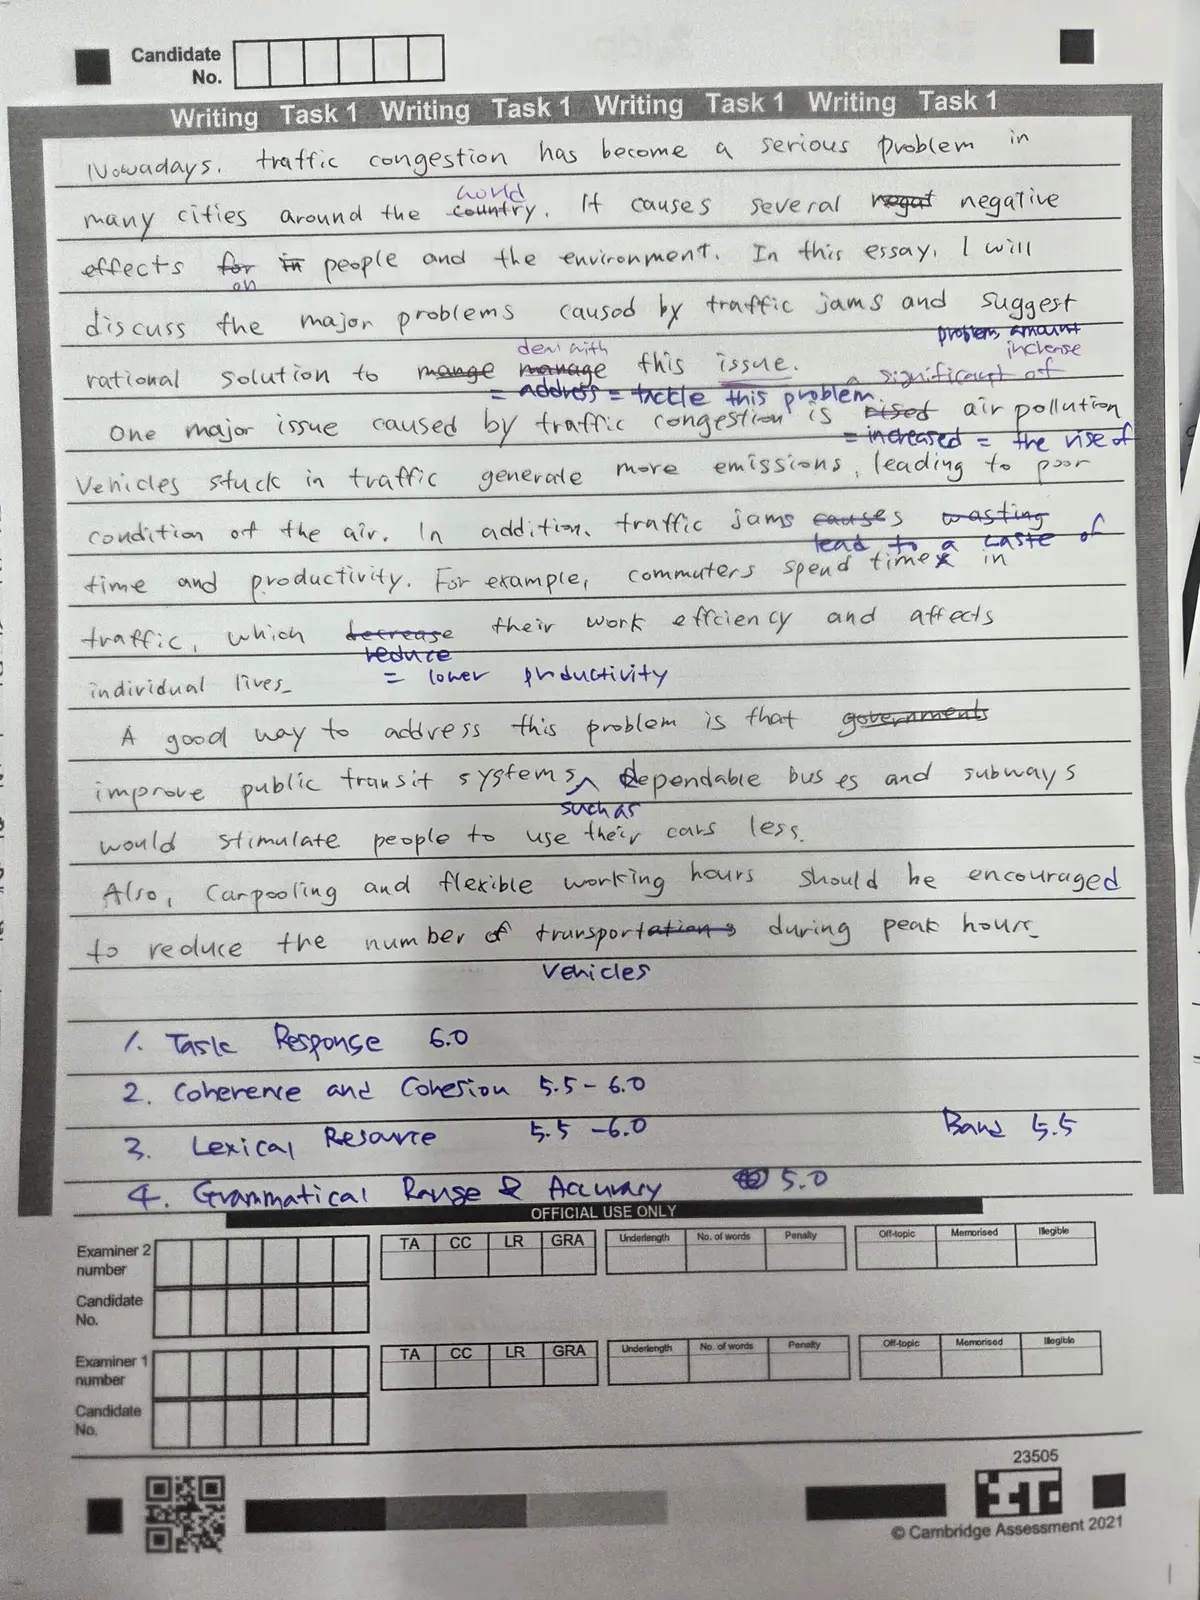 Candidate
No.
Writing Task 1 Writing Task 1 Writing Task 1 Writing Task 1
Nowadays, traffic congestion has become a serious problem in
world
many cities around the country. It causes several negat negative
effects for in people and the environment. In this essay, I will
on
discuss the major problems caused by traffic jams and suggest
problem amount
deal with increase
rational solution to mange manage this issue. significant of
= address = tackle this problem.
One major issue caused by traffic congestion is rised air pollution
= increased = the rise of
Vehicles stuck in traffic generate more emissions, leading to poor
condition of the air. In addition, traffic jams causes wasting
lead to a waste of
time and productivity. For example, commuters spend time in
traffic, which decrease their work effciency and affects
reduce
individual lives. = lower productivity
A good way to address this problem is that governments
improve public transit systems dependable buses and subways
such as
would stimulate people to use their cars less.
Also, Carpooling and flexible working hours should be encouraged
to reduce the number of transportations during peak hours.
vehicles
1. Task Response 6.0
2. Coherence and Cohesion 5.5 - 6.0
3. Lexical Resource 5.5 - 6.0 Band 5.5
4. Grammatical Range & Accuracy 5.0
OFFICIAL USE ONLY
Examiner 2
number
TA CC LR GRA Underlength No. of words Penalty Off-topic Memorised Illegible
Candidate
No.
Examiner 1
number
TA CC LR GRA Underlength No. of words Penalty Off-topic Memorised Illegible
Candidate
No.
23505
© Cambridge Assessment 2021